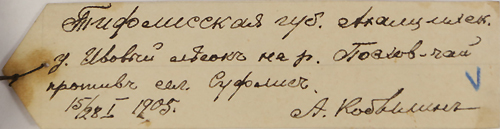 Тифлисская губ. Ахалцихск.
у. Ивовый лѣсокъ на р. Посхов-чай
противъ сел. Суфлис.
15/28 I 1905. А. Кобылинъ